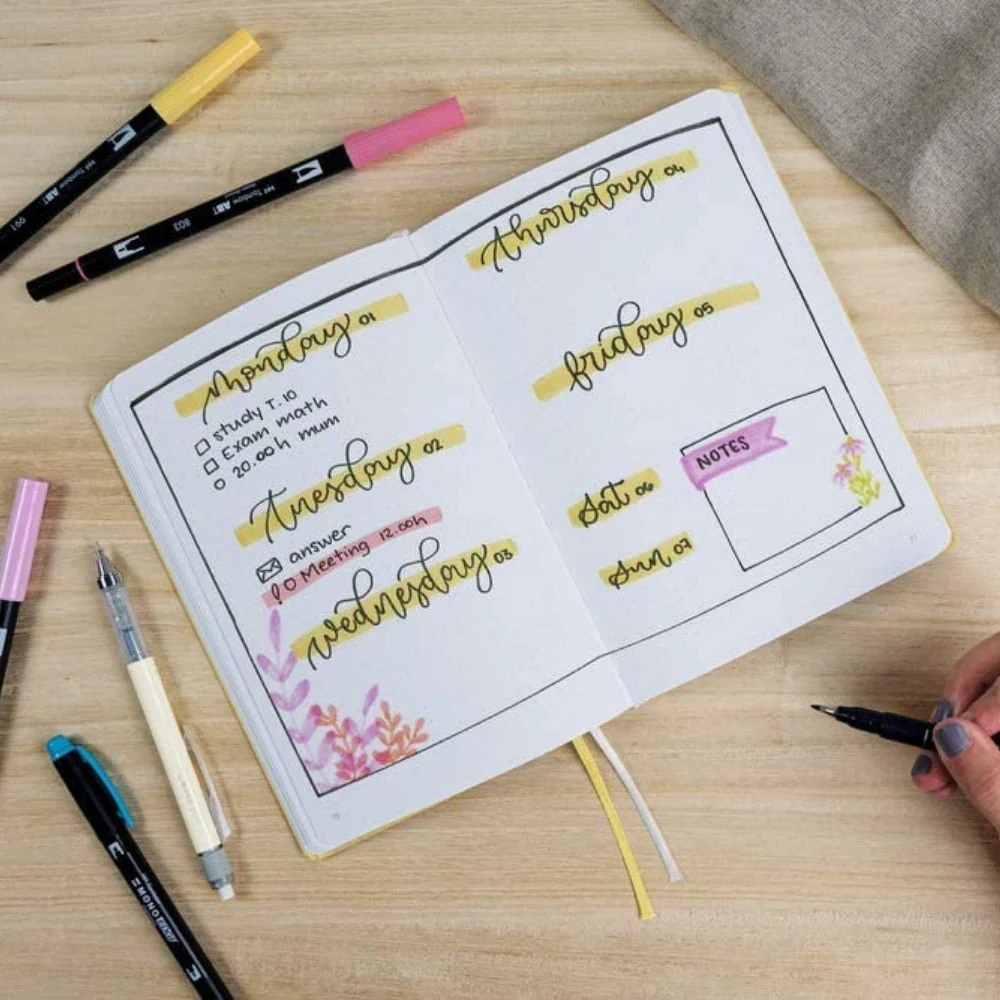 monday 01
study T.10
Exam math
20.00h mum
Tuesday 02
answer
! Meeting 12.00h
wednesday 03
thursday 04
friday 05
Sat 06
Sun 07
NOTES
991
Tombow ABT
803
Tombow ABT
MONO